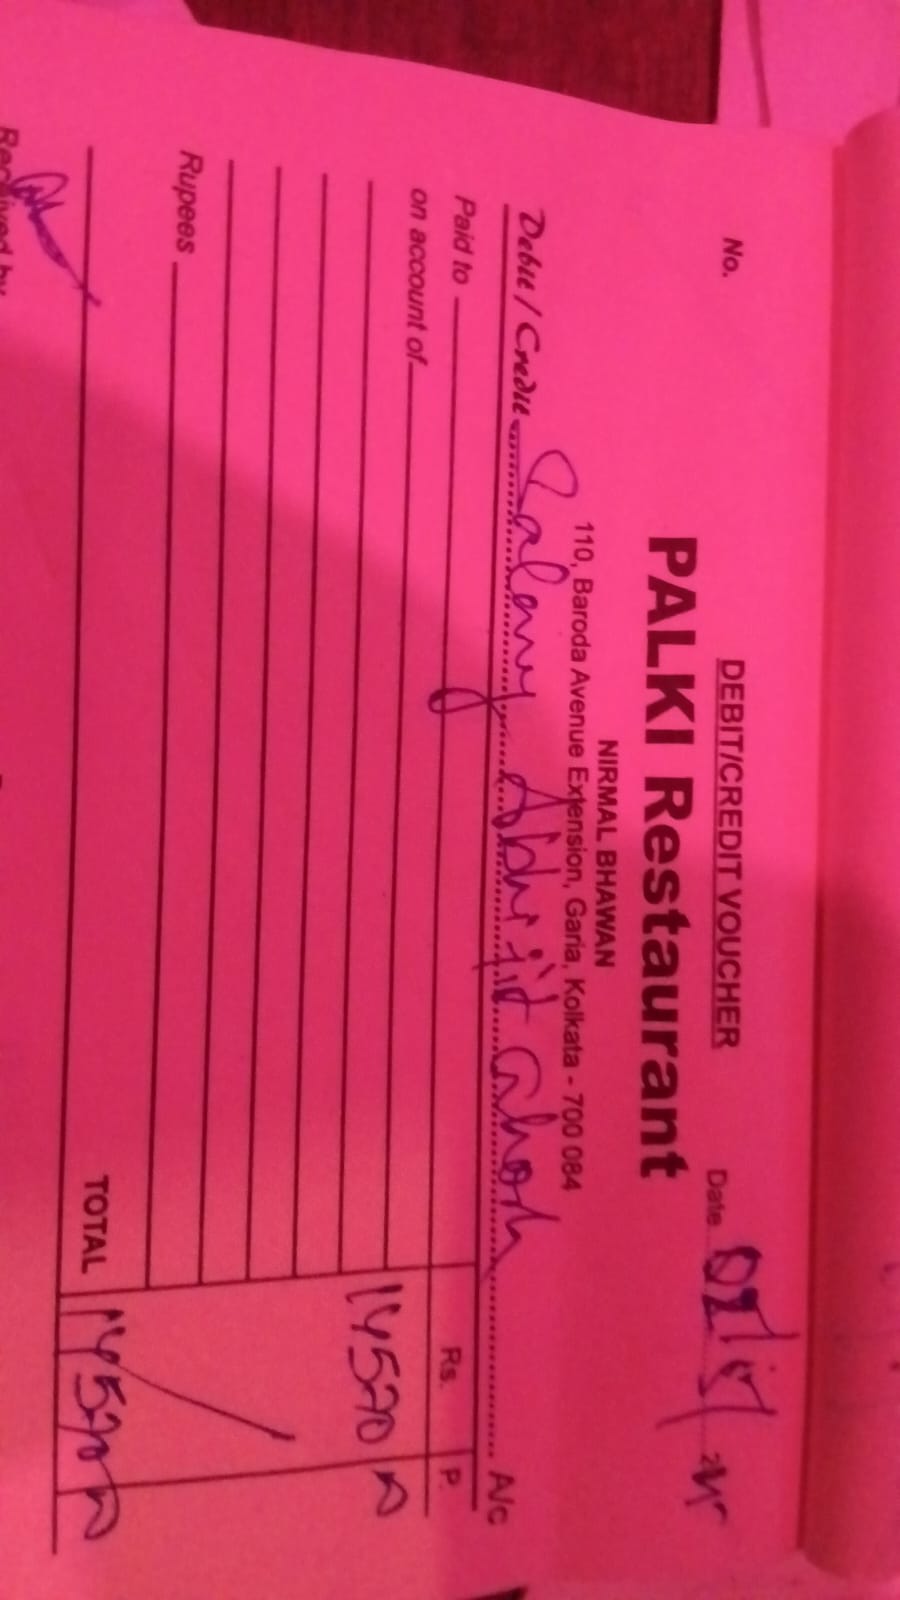 DEBIT/CREDIT VOUCHER
No.
PALKI Restaurant
Date
NIRMAL BHAWAN
110, Baroda Avenue Extension, Garia, Kolkata - 700 084
Debit / Credit Salary Abhijit Ghosh A/c
Paid to
Rs. P.
on account of
14570
Rupees
TOTAL 14570
Received by